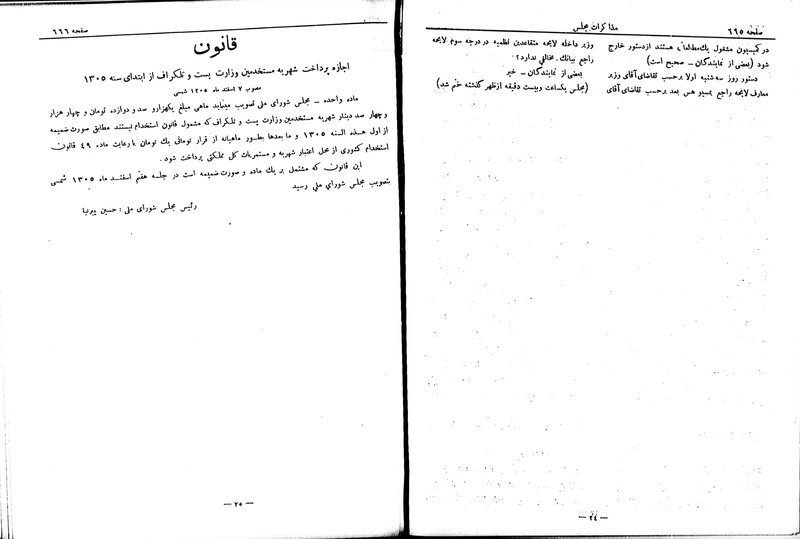 صفحه ۶۶۵
مذاکرات مجلس
در کمیسیون مشغول یك مطالعاتی هستند از دستور خارج
شود (بعضی از نمایندگان ــ صحیح است)
دستور روز سه شنبه اولا برحسب تقاضای آقای وزیر
معارف لایحه راجع بمسیو هس بعد برحسب تقاضای آقای
وزیر داخله لایحه متقاعدین نظمیه در درجه سوم لایحه
راجع ببانك. مخالفی ندارد؟
بعضی از نمایندگان ــ خیر
(مجلس یکساعت وبیست دقیقه ازظهر گذشته ختم شد)
ــ ۲٤ ــ
صفحه ۶۶۶
قانون
اجازه پرداخت شهریه مستخدمین وزارت پست و تلگراف از ابتدای سنه ۱۳۰۵
مصوب ۷ اسفند ماه ۱۳۰۵ شمسی
ماده واحده ــ مجلس شورای ملی تصویب مینماید ماهی مبلغ یکهزارو صد و دوازده تومان و چهار هزار
و چهار صد دینار شهریه مستخدمین وزارت پست و تلگراف که مشمول قانون استخدام نیستند مطابق صورت ضمیمه
از اول هذه السنه ۱۳۰۵ و ما بعدها بطور ماهیانه از قرار تومانی یك تومان با رعایت ماده ٤۹ قانون
استخدام کشوری از محل اعتبار شهریه و مستمریات کل مملکتی پرداخت شود .
این قانون که مشتمل بر یك ماده و صورت ضمیمه است در جلسه هفتم اسفند ماه ۱۳۰۵ شمسی
بتصویب مجلس شورای ملی رسید
رئیس مجلس شورای ملی : حسین پیرنیا
ــ ۲۵ ــ